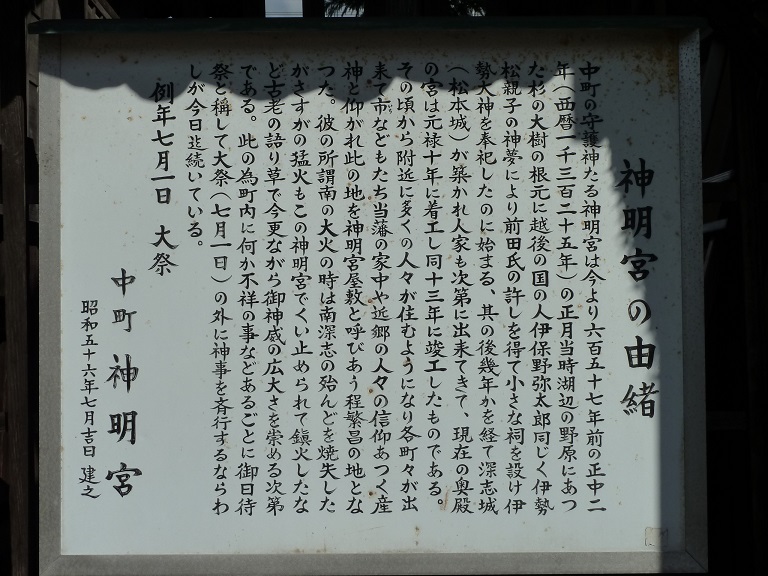 神明宮の由緒
中町の守護神たる神明宮は今より六百五十七年前の正中二
年(西暦一千三百二十五年)の正月当時湖辺の野原にあつ
た杉の大樹の根元に越後の国の人伊保野弥太郎同じく伊勢
松親子の神夢により前田氏の許しを得て小さな祠を設け伊
勢大神を奉祀したのに始まる、其の後幾年かを経て深志城
(松本城)が築かれ人家も次第に出来てきて、現在の奥殿
の宮は元禄十年に着工し同十三年に竣工したものである。
その頃から附近に多くの人々が住むようになり各町々が出
来て市などもたち当藩の家中や近郷の人々の信仰あつく産
神と仰がれ此の地を神明宮屋敷と呼びあう程繁昌の地とな
つた。彼の所謂南の大火の時は南深志の殆んどを焼失した
がさすがの猛火もこの神明宮でくい止められて鎮火したな
ど古老の語り草で今更ながら御神威の広大さを崇める次第
である。此の為町内に何か不祥の事などあるごとに御日待
祭と稱して大祭(七月一日)の外に神事を斉行するならわ
しが今日迄続いている。
例年七月一日 大祭
中町 神明宮
昭和五十六年七月吉日 建之